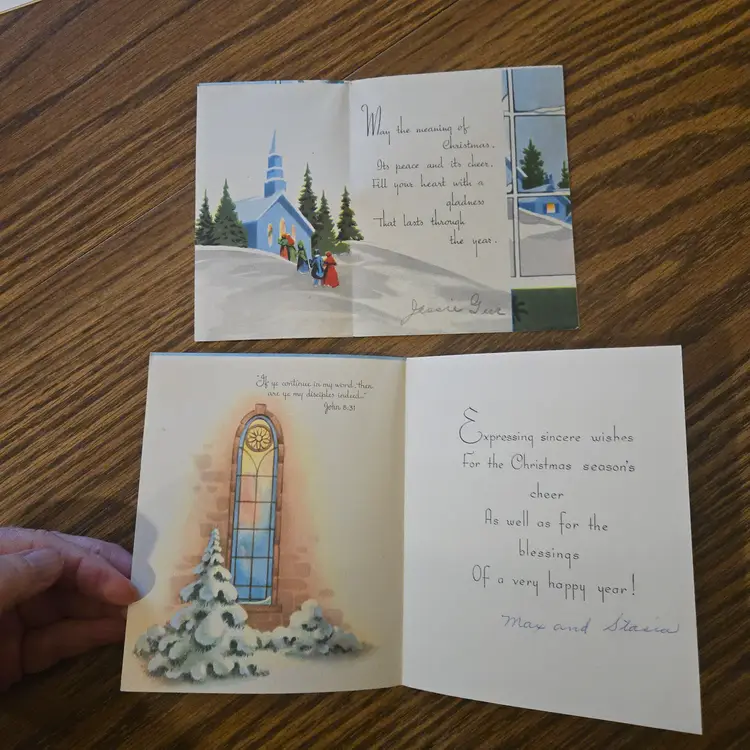 May the meaning of
Christmas,
Its peace and its cheer,
Fill your heart with a
gladness
That lasts through
the year.
Jessie
"If ye continue in my word, then
are ye my disciples indeed..."
John 8:31
Expressing sincere wishes
For the Christmas season's
cheer
As well as for the
blessings
Of a very happy year!
Max and Stasia